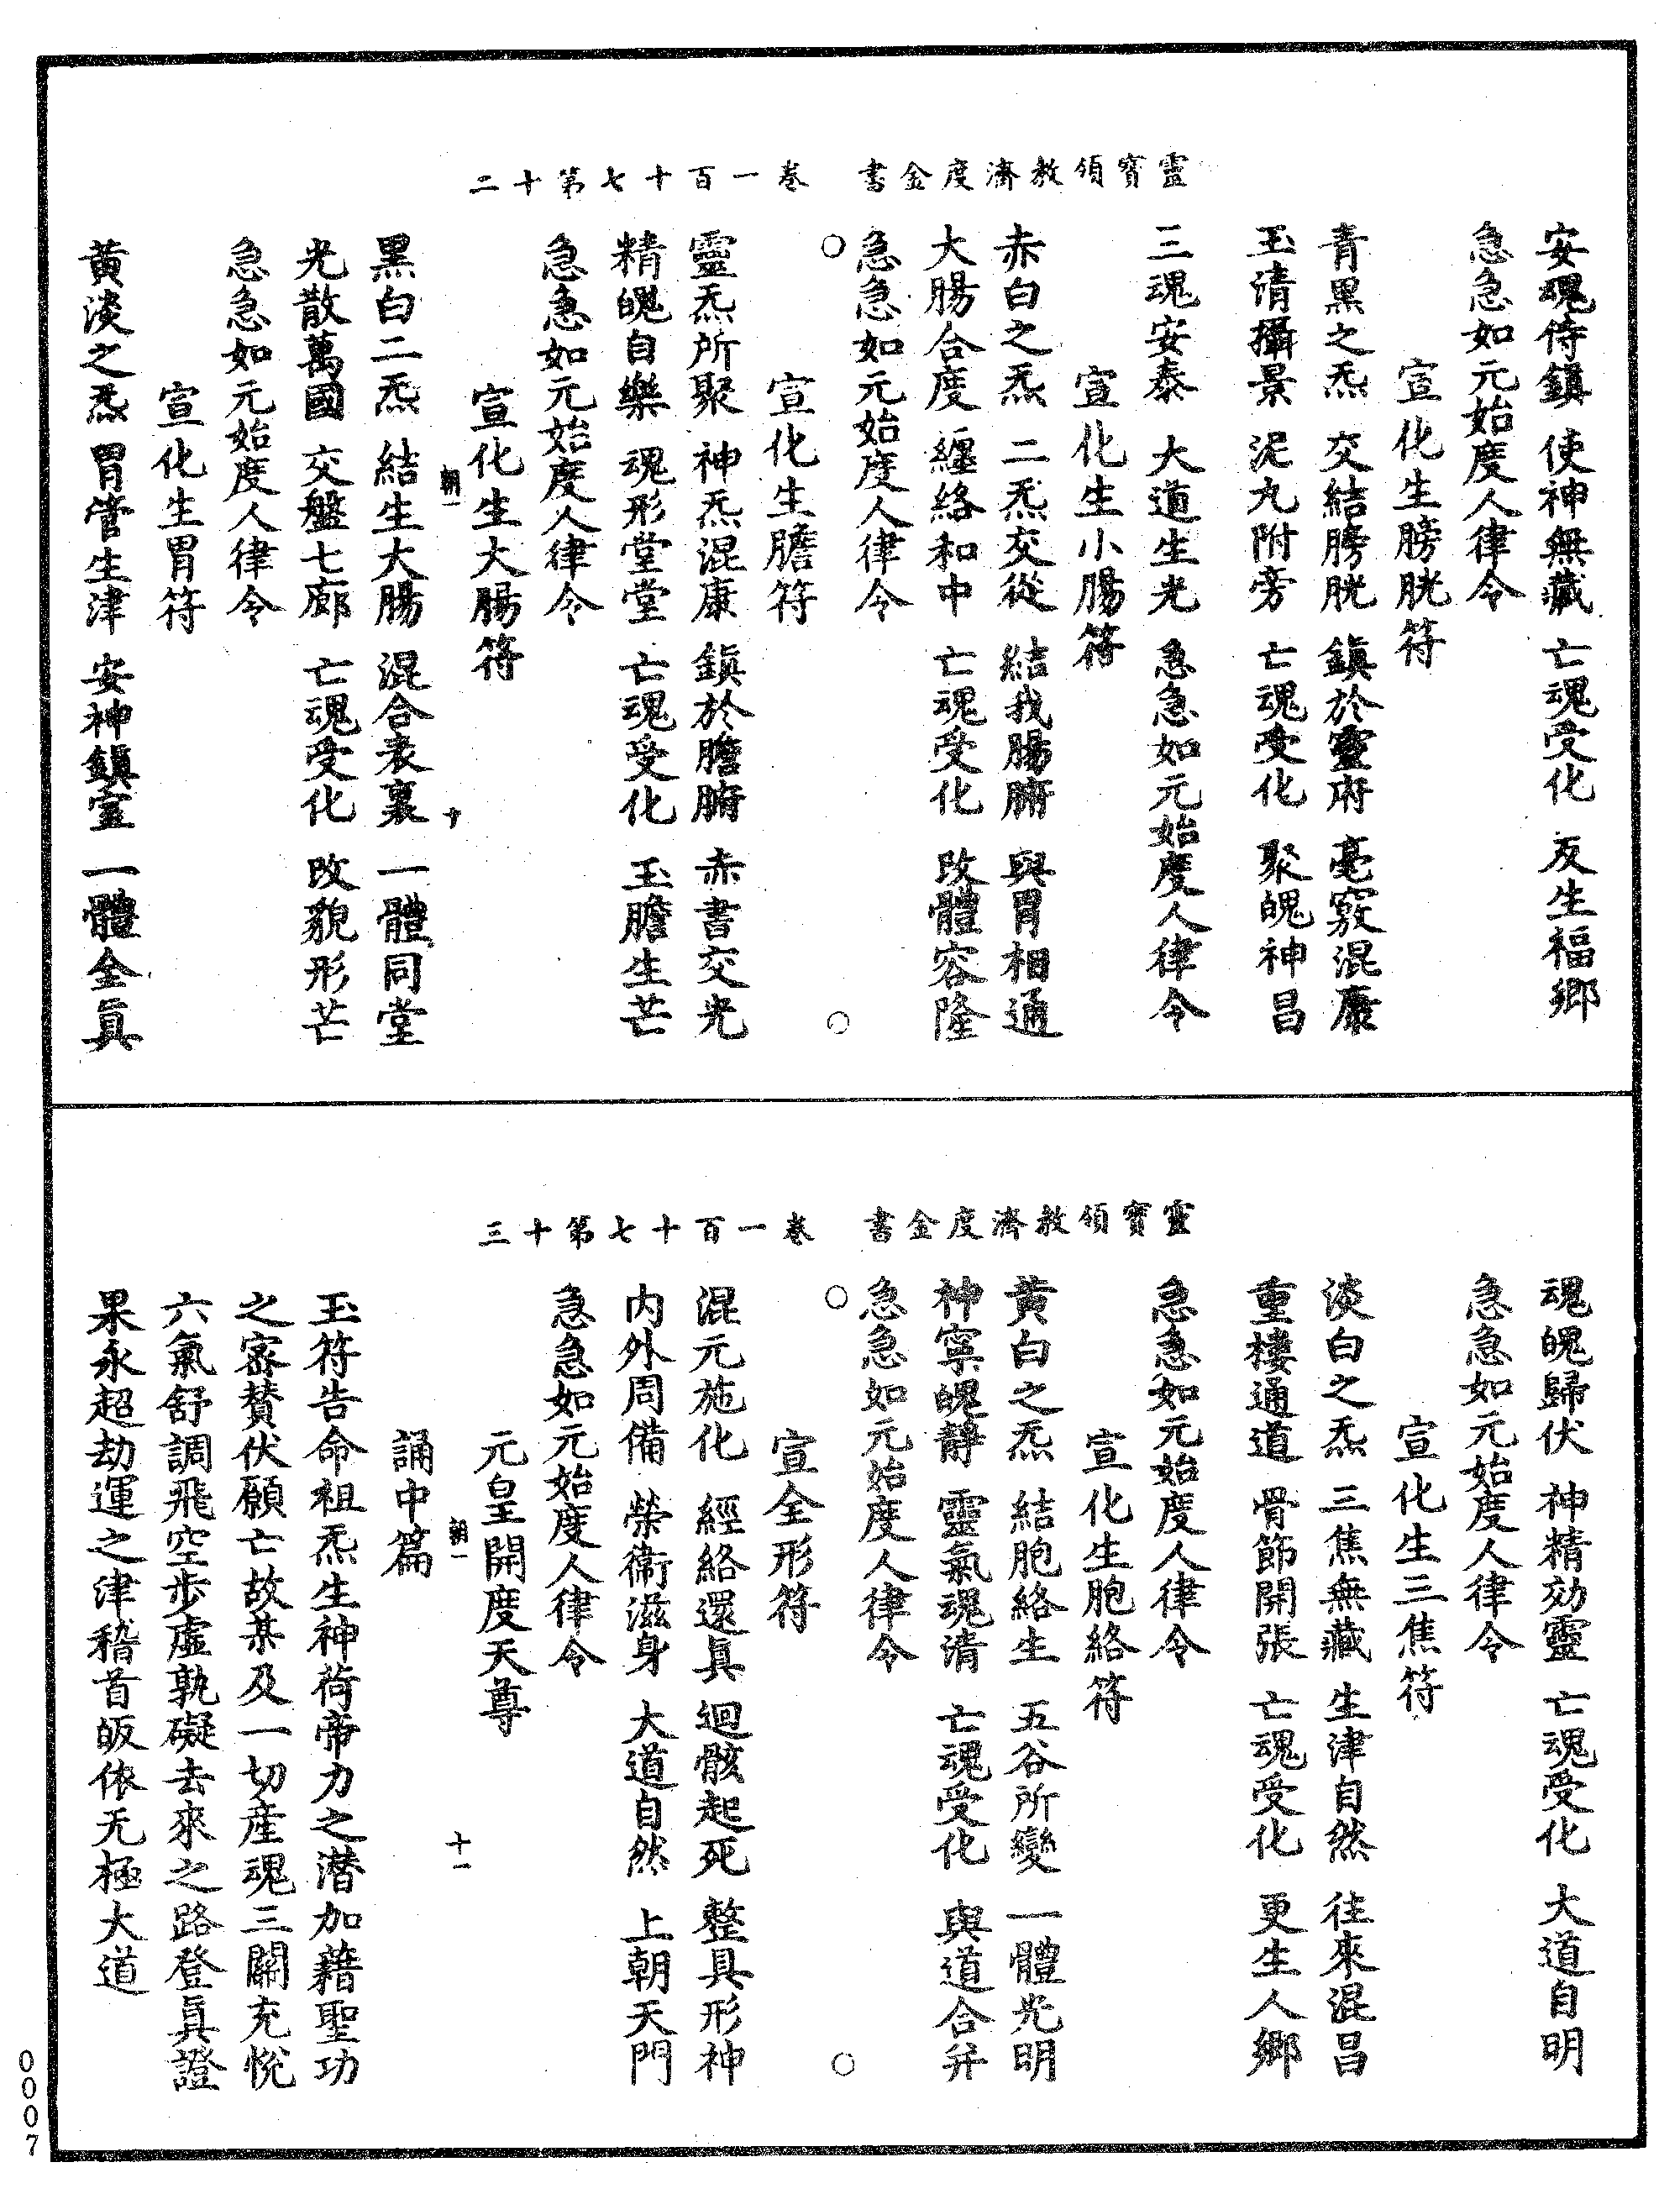 靈寶領教濟度金書　卷一百十七第十二
安魂侍鎮　使神無藏　亡魂受化　反生福鄉
急急如元始度人律令
宣化生膀胱符
青黑之炁　交結膀胱　鎮於靈府　毫竅混康
玉清攝景　泥丸附旁　亡魂受化　聚魄神昌
三魂安泰　大道生光　急急如元始度人律令
宣化生小腸符
赤白之炁　二炁交從　結我腸腑　與胃相通
大腸合度　纏絡和中　亡魂受化　改體容隆
急急如元始度人律令
○　○
宣化生膽符
靈炁所聚　神炁混康　鎮於膽腑　赤書交光
精魄自樂　魂形堂堂　亡魂受化　玉膽生芒
急急如元始度人律令
宣化生大腸符
朝一　十
黑白二炁　結生大腸　混合表裏　一體同堂
光散萬國　交盤七廊　亡魂受化　改貌形芒
急急如元始度人律令
宣化生胃符
黃淡之炁　胃管生津　安神鎮室　一體全眞
靈寶領教濟度金書　卷一百十七第十三
魂魄歸伏　神精効靈　亡魂受化　大道自明
急急如元始度人律令
宣化生三焦符
淡白之炁　三焦無藏　生津自然　往來混昌
重樓通道　骨節開張　亡魂受化　更生人鄉
急急如元始度人律令
宣化生胞絡符
黃白之炁　結胞絡生　五谷所變　一體光明
神寧魄靜　靈氣魂清　亡魂受化　與道合并
急急如元始度人律令
○　○
宣全形符
混元施化　經絡還眞　迴骸起死　整具形神
内外周備　榮衞滋身　大道自然　上朝天門
急急如元始度人律令
元皇開度天尊
朝一　十一
誦中篇
玉符告命祖炁生神荷帝力之潜加藉聖功
之密賛伏願亡故某及一切産魂三關充悅
六氣舒調飛空步虛孰礙去來之路登眞證
果永超劫運之津稽首皈依无極大道
0007